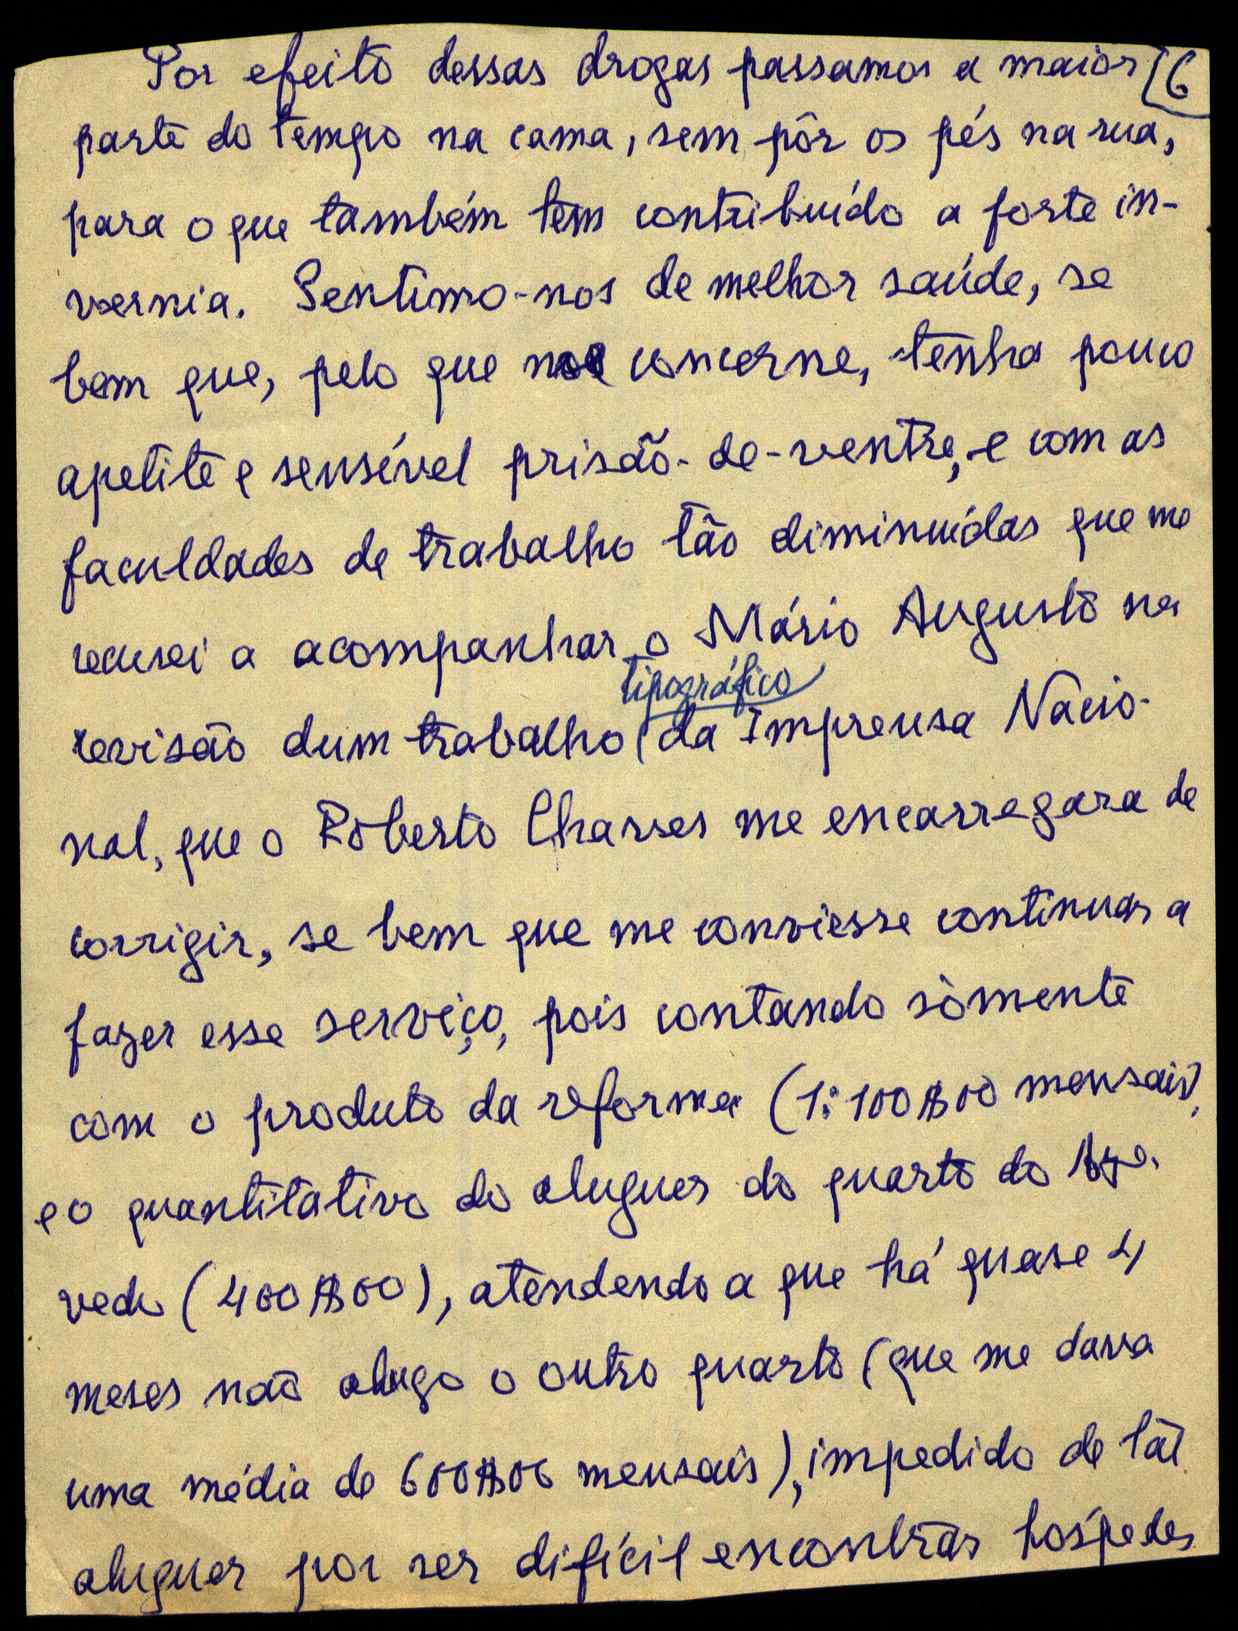 Por efeito dessas drogas passamos a maior [6
parte do tempo na cama, sem pôr os pés na rua,
para o que também tem contribuído a forte in-
vernia. Sentimo-nos de melhor saúde, se
bem que, pelo que me concerne, tenha pouco
apetite e sensível prisão-de-ventre, e com as
faculdades de trabalho tão diminuídas que me
recusei a acompanhar o Mário Augusto na
tipográfico
revisão dum trabalho (da Imprensa Nacio-
nal, que o Roberto Chaves me encarregara de
corrigir, se bem que me conviesse continuar a
fazer esse serviço, pois contando sòmente
com o produto da reforma (1:100$00 mensais),
e o quantitativo do aluguer do quarto do
(400$00), atendendo a que há quase 4
meses não alugo o outro quarto (que me dava
uma média de 600$00 mensais), impedido de tal
aluguer por ser difícil encontrar hóspedes